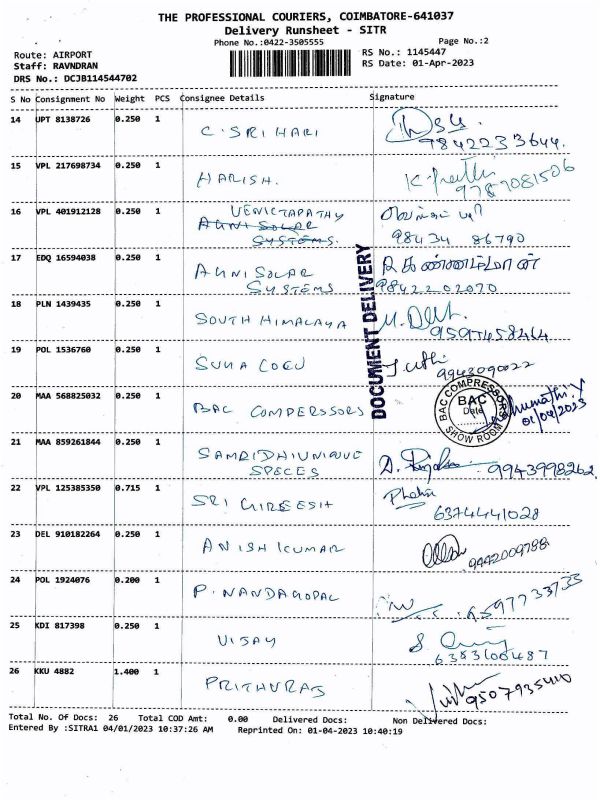 THE PROFESSIONAL COURIERS, COIMBATORE-641037
Delivery Runsheet - SITR
Phone No.:0422-3505555 Page No.:2
Route: AIRPORT RS No.: 1145447
Staff: RAVNDRAN RS Date: 01-Apr-2023
DRS No.: DCJB114544702
S No Consignment No Weight PCS Consignee Details Signature
14 UPT 8138726 0.250 1
C. SRI HARI
9842233644
15 VPL 217698734 0.250 1
HARISH.
9787081506
16 VPL 401912128 0.250 1
VENICTAPATHY
AGNI SOLAR
SYSTEMS.
98434 86790
17 EDQ 16594038 0.250 1
AGNI SOLAR
SYSTEMS
98422 02070
DOCUMENT DELIVERY
18 PLN 1439435 0.250 1
SOUTH HIMALAYA
9597458464
19 POL 1536760 0.250 1
SUNA COGU
9943090022
20 MAA 568825032 0.250 1
BAC COMPERSSORS
BAC COMPRESSORS
BAC
Date
SHOW ROOM
01/04/2023
21 MAA 859261844 0.250 1
SAMRIDHIUNIQUE
SPECES
9943998262
22 VPL 125385350 0.715 1
SRI GIREESH
6374441028
23 DEL 910182264 0.250 1
ANISH KUMAR
9442009788
24 POL 1924076 0.200 1
P. NANDAGOPAL
6597733733
25 KDI 817398 0.250 1
VIJAY
6383100487
26 KKU 4882 1.400 1
PRITHURAJ
9507935410
Total No. Of Docs: 26 Total COD Amt: 0.00 Delivered Docs: Non Delivered Docs:
Entered By :SITRA1 04/01/2023 10:37:26 AM Reprinted On: 01-04-2023 10:40:19